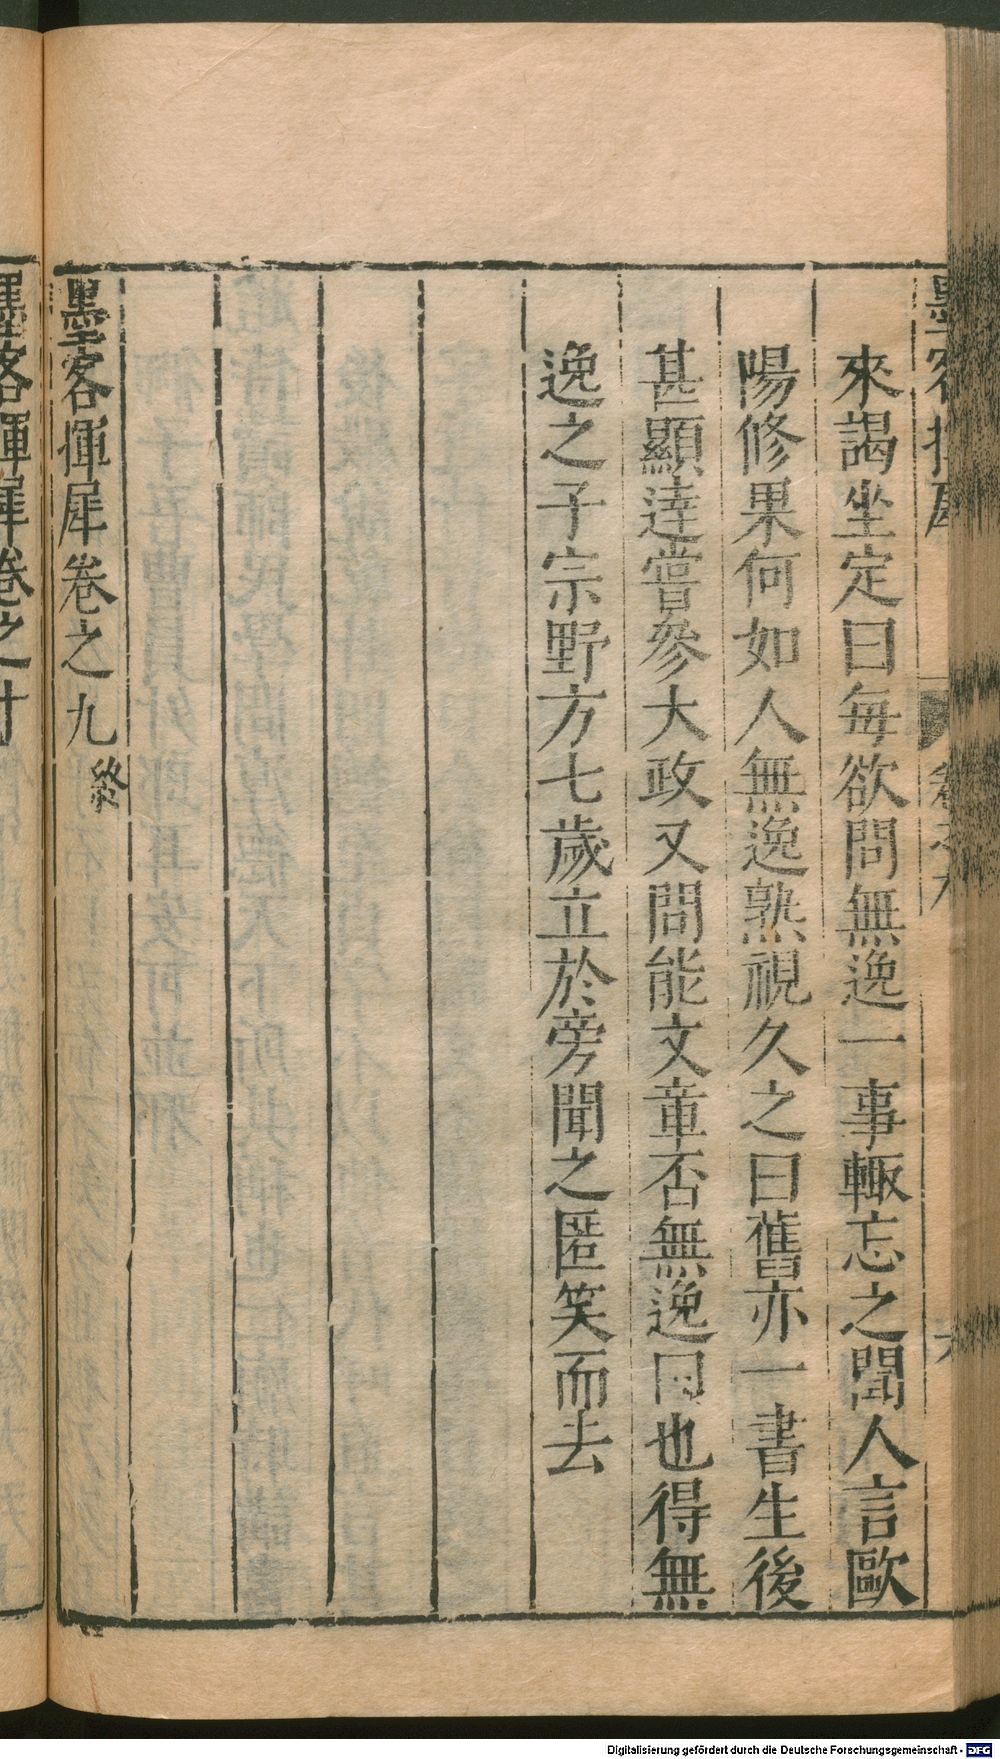 來謁坐定曰每欲問無逸一事輙忘之聞人言歐
陽修果何如人無逸熟視久之曰舊亦一書生後
甚顯達嘗參大政又問能文章否無逸曰也得無
逸之子宗野方七歲立於旁聞之匿笑而去
墨客揮犀卷之九終
墨客揮犀卷之十
Digitalisierung gefördert durch die Deutsche Forschungsgemeinschaft - DFG